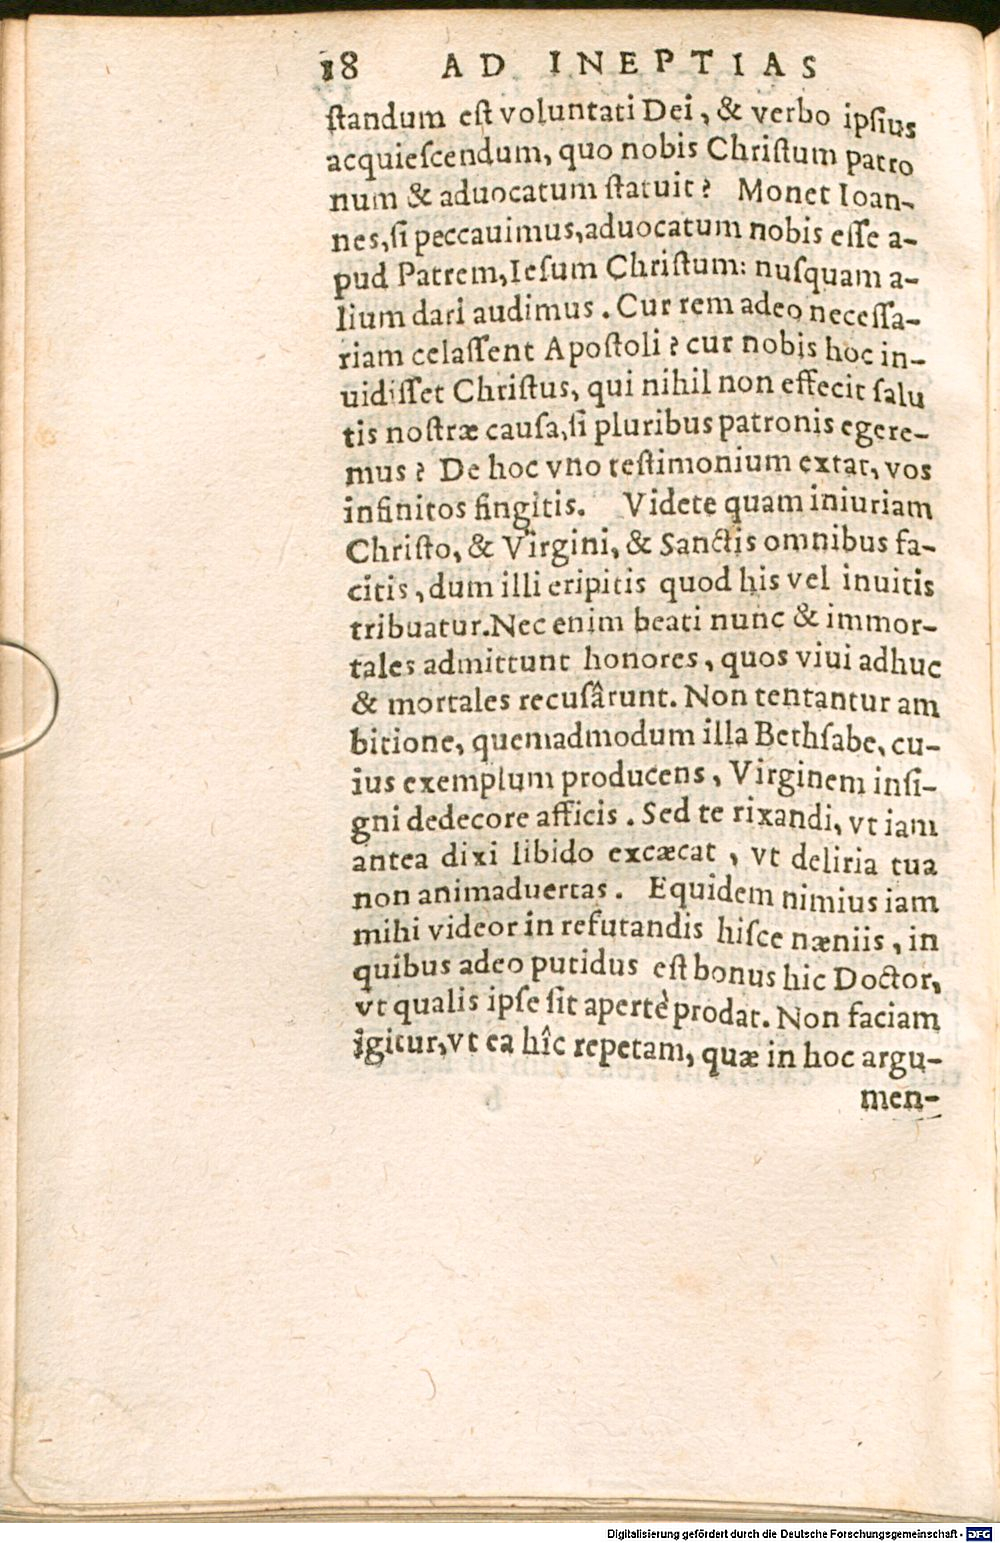 18 AD INEPTIAS
ſtandum eſt voluntati Dei, & verbo ipſius
acquieſcendum, quo nobis Chriſtum patro
num & aduocatum ſtatuit? Monet Ioan-
nes, ſi peccauimus, aduocatum nobis eſſe a-
pud Patrem, Ieſum Chriſtum: nuſquam a-
lium dari audimus. Cur rem adeo neceſſa-
riam celaſſent Apoſtoli? cur nobis hoc in-
uidiſſet Chriſtus, qui nihil non effecit ſalu
tis noſtræ cauſa, ſi pluribus patronis egere-
mus? De hoc vno teſtimonium extat, vos
infinitos fingitis. Videte quam iniuriam
Chriſto, & Virgini, & Sanctis omnibus fa-
citis, dum illi eripitis quod his vel inuitis
tribuatur. Nec enim beati nunc & immor-
tales admittunt honores, quos viui adhuc
& mortales recuſârunt. Non tentantur am
bitione, quemadmodum illa Bethſabe, cu-
ius exemplum producens, Virginem inſi-
gni dedecore afficis. Sed te rixandi, vt iam
antea dixi libido excæcat, vt deliria tua
non animaduertas. Equidem nimius iam
mihi videor in refutandis hiſce næniis, in
quibus adeo putidus eſt bonus hic Doctor,
vt qualis ipſe ſit apertè prodat. Non faciam
igitur, vt ea hîc repetam, quæ in hoc argu-
men-
Digitalisierung gefördert durch die Deutsche Forschungsgemeinschaft - DFG